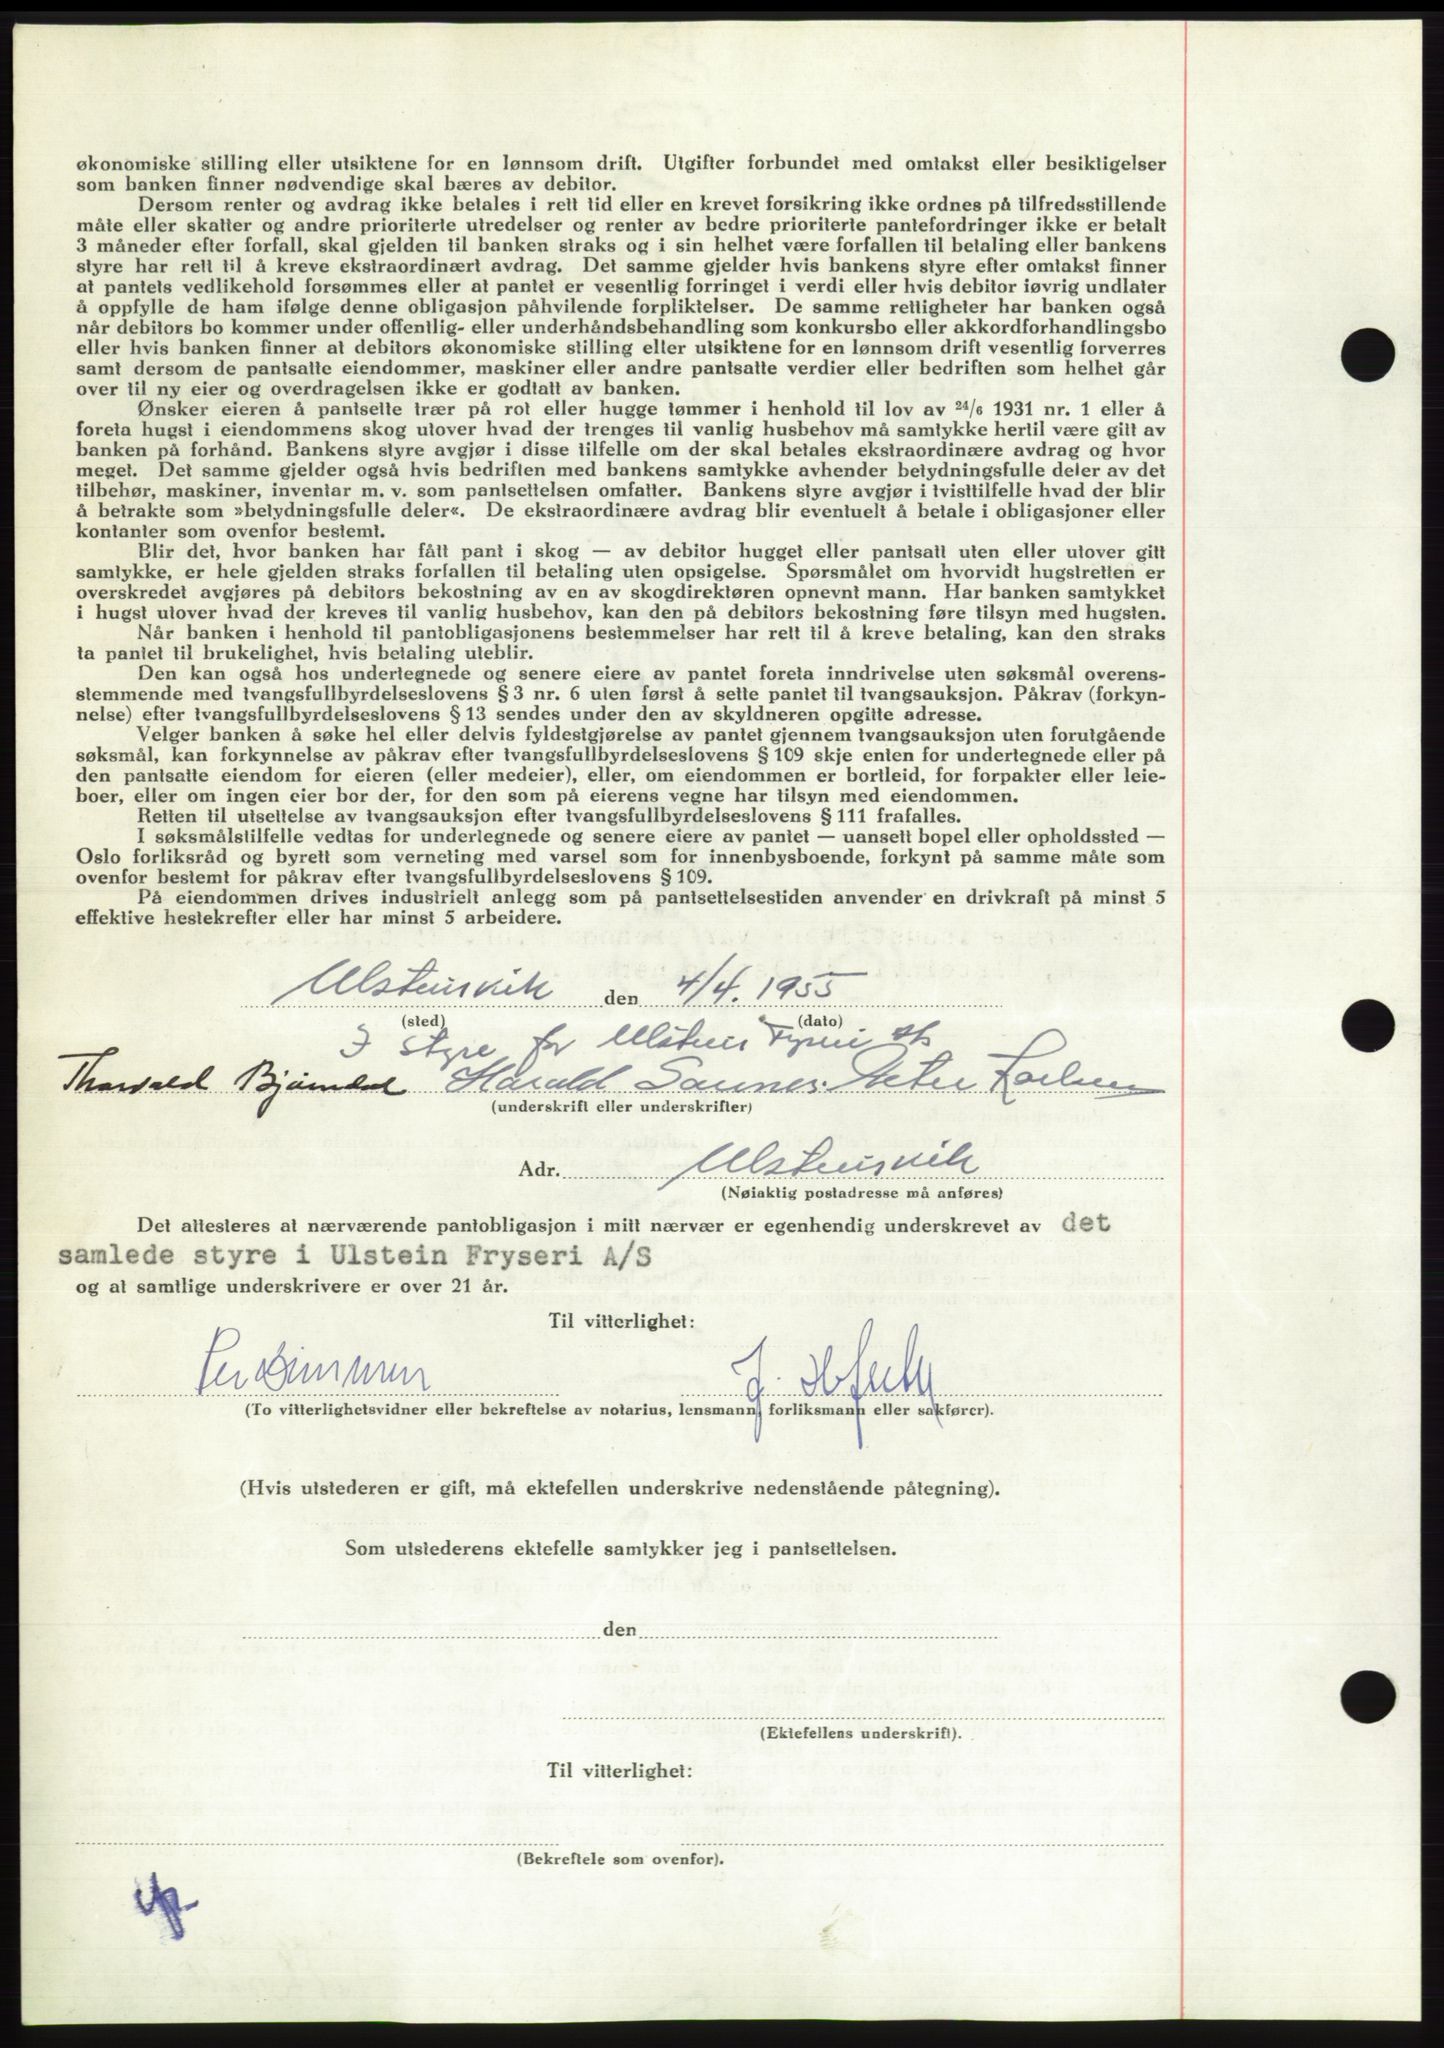 økonomiske stilling eller utsiktene for en lønnsom drift. Utgifter forbundet med omtakst eller besiktigelser
som banken finner nødvendige skal bæres av debitor.
Dersom renter og avdrag ikke betales i rett tid eller en krevet forsikring ikke ordnes på tilfredsstillende
måte eller skatter og andre prioriterte utredelser og renter av bedre prioriterte pantefordringer ikke er betalt
3 måneder efter forfall, skal gjelden til banken straks og i sin helhet være forfallen til betaling eller bankens
styre har rett til å kreve ekstraordinært avdrag. Det samme gjelder hvis bankens styre efter omtakst finner
at pantets vedlikehold forsømmes eller at pantet er vesentlig forringet i verdi eller hvis debitor iøvrig undlater
å oppfylle de ham ifølge denne obligasjon påhvilende forpliktelser. De samme rettigheter har banken også
når debitors bo kommer under offentlig- eller underhåndsbehandling som konkursbo eller akkordforhandlingsbo
eller hvis banken finner at debitors økonomiske stilling eller utsiktene for en lønnsom drift vesentlig forverres
samt dersom de pantsatte eiendommer, maskiner eller andre pantsatte verdier eller bedriften som helhet går
over til ny eier og overdragelsen ikke er godtatt av banken.
Ønsker eieren å pantsette trær på rot eller hugge tømmer i henhold til lov av 24/6 1931 nr. 1 eller å
foreta hugst i eiendommens skog utover hvad der trenges til vanlig husbehov må samtykke hertil være gitt av
banken på forhånd. Bankens styre avgjør i disse tilfelle om der skal betales ekstraordinære avdrag og hvor
meget. Det samme gjelder også hvis bedriften med bankens samtykke avhender betydningsfulle deler av det
tilbehør, maskiner, inventar m. v. som pantsettelsen omfatter. Bankens styre avgjør i tvisttilfelle hvad der blir
å betrakte som »betydningsfulle deler«. De ekstraordinære avdrag blir eventuelt å betale i obligasjoner eller
kontanter som ovenfor bestemt.
Blir det, hvor banken har fått pant i skog — av debitor hugget eller pantsatt uten eller utover gitt
samtykke, er hele gjelden straks forfallen til betaling uten opsigelse. Spørsmålet om hvorvidt hugstretten er
overskredet avgjøres på debitors bekostning av en av skogdirektøren opnevnt mann. Har banken samtykket
i hugst utover hvad der kreves til vanlig husbehov, kan den på debitors bekostning føre tilsyn med hugsten.
Når banken i henhold til pantobligasjonens bestemmelser har rett til å kreve betaling, kan den straks
ta pantet til brukelighet, hvis betaling uteblir.
Den kan også hos undertegnede og senere eiere av pantet foreta inndrivelse uten søksmål overens-
stemmende med tvangsfullbyrdelseslovens § 3 nr. 6 uten først å sette pantet til tvangsauksjon. Påkrav (forkyn-
nelse) efter tvangsfullbyrdelseslovens § 13 sendes under den av skyldneren opgitte adresse.
Velger banken å søke hel eller delvis fyldestgjørelse av pantet gjennem tvangsauksjon uten forutgående
søksmål, kan forkynnelse av påkrav efter tvangsfullbyrdelseslovens § 109 skje enten for undertegnede eller på
den pantsatte eiendom for eieren (eller medeier), eller, om eiendommen er bortleid, for forpakter eller leie-
boer, eller om ingen eier bor der, for den som på eierens vegne har tilsyn med eiendommen.
Retten til utsettelse av tvangsauksjon efter tvangsfullbyrdelseslovens § 111 frafalles.
I søksmålstilfelle vedtas for undertegnede og senere eiere av pantet — uansett bopel eller opholdssted —
Oslo forliksråd og byrett som verneting med varsel som for innenbysboende, forkynt på samme måte som
ovenfor bestemt for påkrav efter tvangsfullbyrdelseslovens § 109.
På eiendommen drives industrielt anlegg som på pantsettelsestiden anvender en drivkraft på minst 5
effektive hestekrefter eller har minst 5 arbeidere.
Ulsteinsvik den 4/4. 1955
(sted) (dato)
I styre for Ulstein Fryseri A/S
Thorvald Bjørndal Harald Saunes. Peter Karlsen
(underskrift eller underskrifter)
Adr. Ulsteinsvik
(Nøiaktig postadresse må anføres)
Det attesteres at nærværende pantobligasjon i mitt nærvær er egenhendig underskrevet av det
samlede styre i Ulstein Fryseri A/S
og at samtlige underskrivere er over 21 år.
Til vitterlighet:
Per
(To vitterlighetsvidner eller bekreftelse av notarius, lensmann, forliksmann eller sakfører).
(Hvis utstederen er gift, må ektefellen underskrive nedenstående påtegning).
Som utstederens ektefelle samtykker jeg i pantsettelsen.
den
(Ektefellens underskrift).
Til vitterlighet:
(Bekreftele som ovenfor).